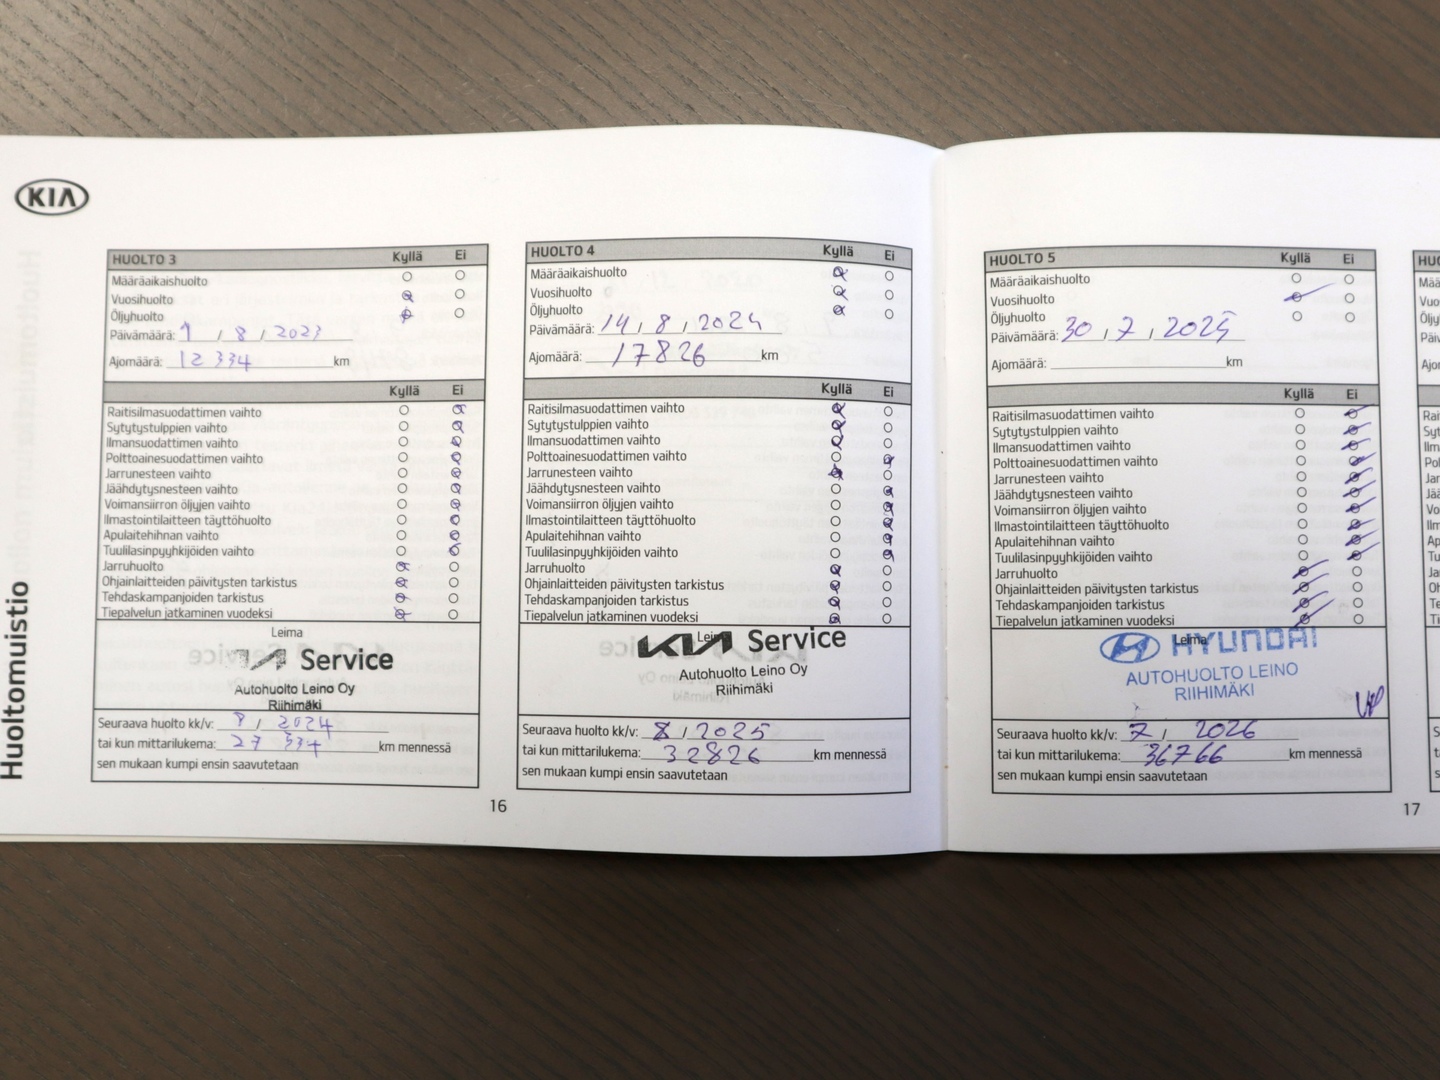 KIA
Huoltomuistio
HUOLTO 3 Kyllä Ei
Määräaikaishuolto
Vuosihuolto
Öljyhuolto
Päivämäärä: 1 / 8 / 2023
Ajomäärä: 12 334 km
Kyllä Ei
Raitisilmasuodattimen vaihto
Sytytystulppien vaihto
Ilmansuodattimen vaihto
Polttoainesuodattimen vaihto
Jarrunesteen vaihto
Jäähdytysnesteen vaihto
Voimansiirron öljyjen vaihto
Ilmastointilaitteen täyttöhuolto
Apulaitehihnan vaihto
Tuulilasinpyyhkijöiden vaihto
Jarruhuolto
Ohjainlaitteiden päivitysten tarkistus
Tehdaskampanjoiden tarkistus
Tiepalvelun jatkaminen vuodeksi
Leima
KIA Service
Autohuolto Leino Oy
Riihimäki
Seuraava huolto kk/v: 8 / 2024
tai kun mittarilukema: 27 334 km mennessä
sen mukaan kumpi ensin saavutetaan
16
HUOLTO 4 Kyllä Ei
Määräaikaishuolto
Vuosihuolto
Öljyhuolto
Päivämäärä: 14 / 8 / 2024
Ajomäärä: 17826 km
Kyllä Ei
Raitisilmasuodattimen vaihto
Sytytystulppien vaihto
Ilmansuodattimen vaihto
Polttoainesuodattimen vaihto
Jarrunesteen vaihto
Jäähdytysnesteen vaihto
Voimansiirron öljyjen vaihto
Ilmastointilaitteen täyttöhuolto
Apulaitehihnan vaihto
Tuulilasinpyyhkijöiden vaihto
Jarruhuolto
Ohjainlaitteiden päivitysten tarkistus
Tehdaskampanjoiden tarkistus
Tiepalvelun jatkaminen vuodeksi
Leima
KIA Service
Autohuolto Leino Oy
Riihimäki
Seuraava huolto kk/v: 8 / 2025
tai kun mittarilukema: 32826 km mennessä
sen mukaan kumpi ensin saavutetaan
HUOLTO 5 Kyllä Ei
Määräaikaishuolto
Vuosihuolto
Öljyhuolto
Päivämäärä: 30 / 7 / 2025
Ajomäärä: km
Kyllä Ei
Raitisilmasuodattimen vaihto
Sytytystulppien vaihto
Ilmansuodattimen vaihto
Polttoainesuodattimen vaihto
Jarrunesteen vaihto
Jäähdytysnesteen vaihto
Voimansiirron öljyjen vaihto
Ilmastointilaitteen täyttöhuolto
Apulaitehihnan vaihto
Tuulilasinpyyhkijöiden vaihto
Jarruhuolto
Ohjainlaitteiden päivitysten tarkistus
Tehdaskampanjoiden tarkistus
Tiepalvelun jatkaminen vuodeksi
Leima
HYUNDAI
AUTOHUOLTO LEINO
RIIHIMÄKI
Seuraava huolto kk/v: 7 / 2026
tai kun mittarilukema: 36766 km mennessä
sen mukaan kumpi ensin saavutetaan
17